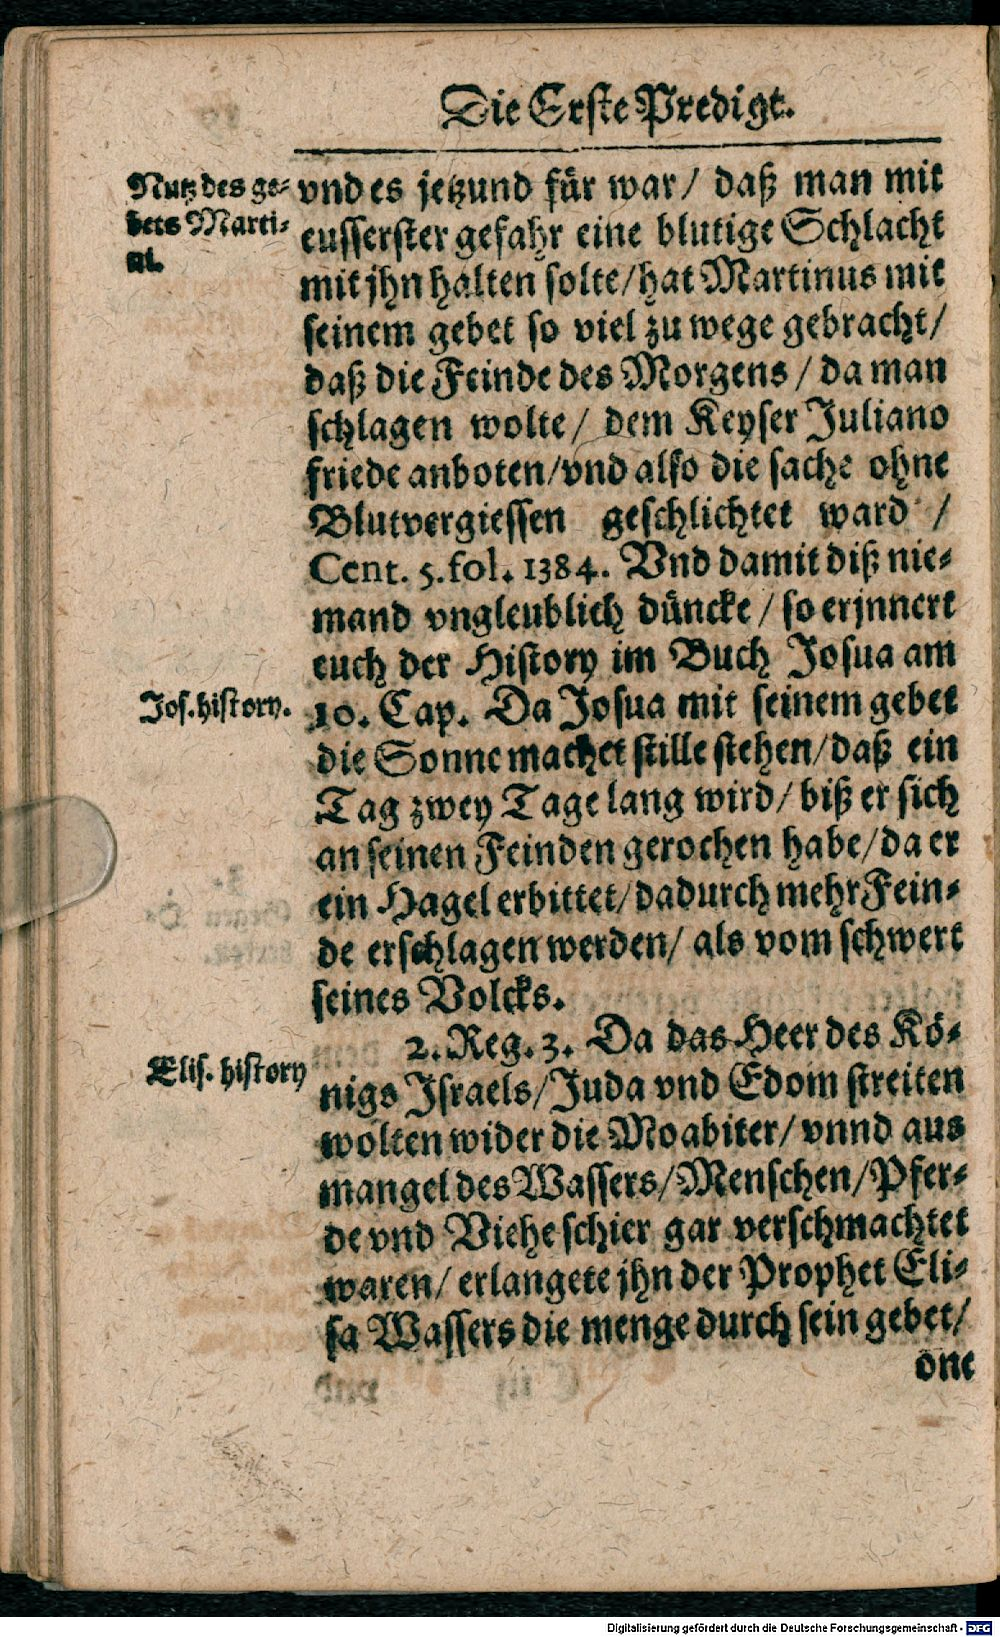 Die Erste Predigt.
Nutz des ge-
bets Marti-
ni.
vnd es jetzund für war/ daß man mit
eusserster gefahr eine blutige Schlacht
mit jhn halten solte/ hat Martinus mit
seinem gebet so viel zu wege gebracht/
daß die Feinde des Morgens/ da man
schlagen wolte/ dem Keyser Juliano
friede anboten/ vnd also die sache ohne
Blutvergiessen geschlichtet ward /
Cent. 5. fol. 1384. Vnd damit diß nie-
mand vngleublich düncke/ so erjnnert
euch der History im Buch Josua am
Jos. history.
10. Cap. Da Josua mit seinem gebet
die Sonne machet stille stehen/ daß ein
Tag zwey Tage lang wird/ biß er sich
an seinen Feinden gerochen habe/ da er
ein Hagel erbittet/ dadurch mehr Fein-
de erschlagen werden/ als vom schwert
seines Volcks.
Elis. history
2. Reg. 3. Da das Heer des Kö-
nigs Israels/ Juda vnd Edom streiten
wolten wider die Moabiter/ vnnd aus
mangel des Wassers/ Menschen/ Pfer-
de vnd Viehe schier gar verschmachtet
waren/ erlangete jhn der Prophet Eli-
sa Wassers die menge durch sein gebet/
one
Digitalisierung gefördert durch die Deutsche Forschungsgemeinschaft - DFG